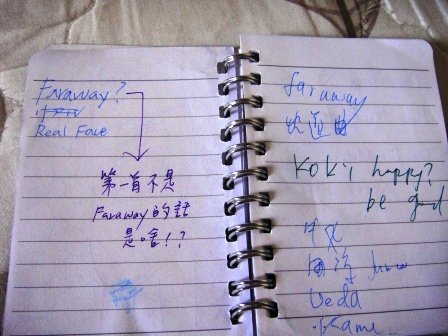 Faraway?
Real Face
第一首不是
Faraway的話
是啥!?
faraway
KOKI happy?
be good
中丸
Ueda
Kame